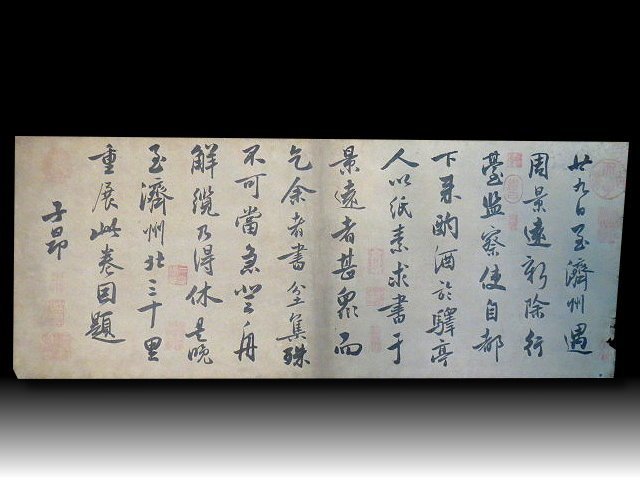 廿九日至濟州遇
周景遠新除行
臺監察使自都
下來酌酒於驛亭
人以紙素求書于
景遠者甚眾而
乞余者書坌集殊
不可當急登舟
解纜乃得休是晚
至濟州北三十里
重展此卷因題
子昂